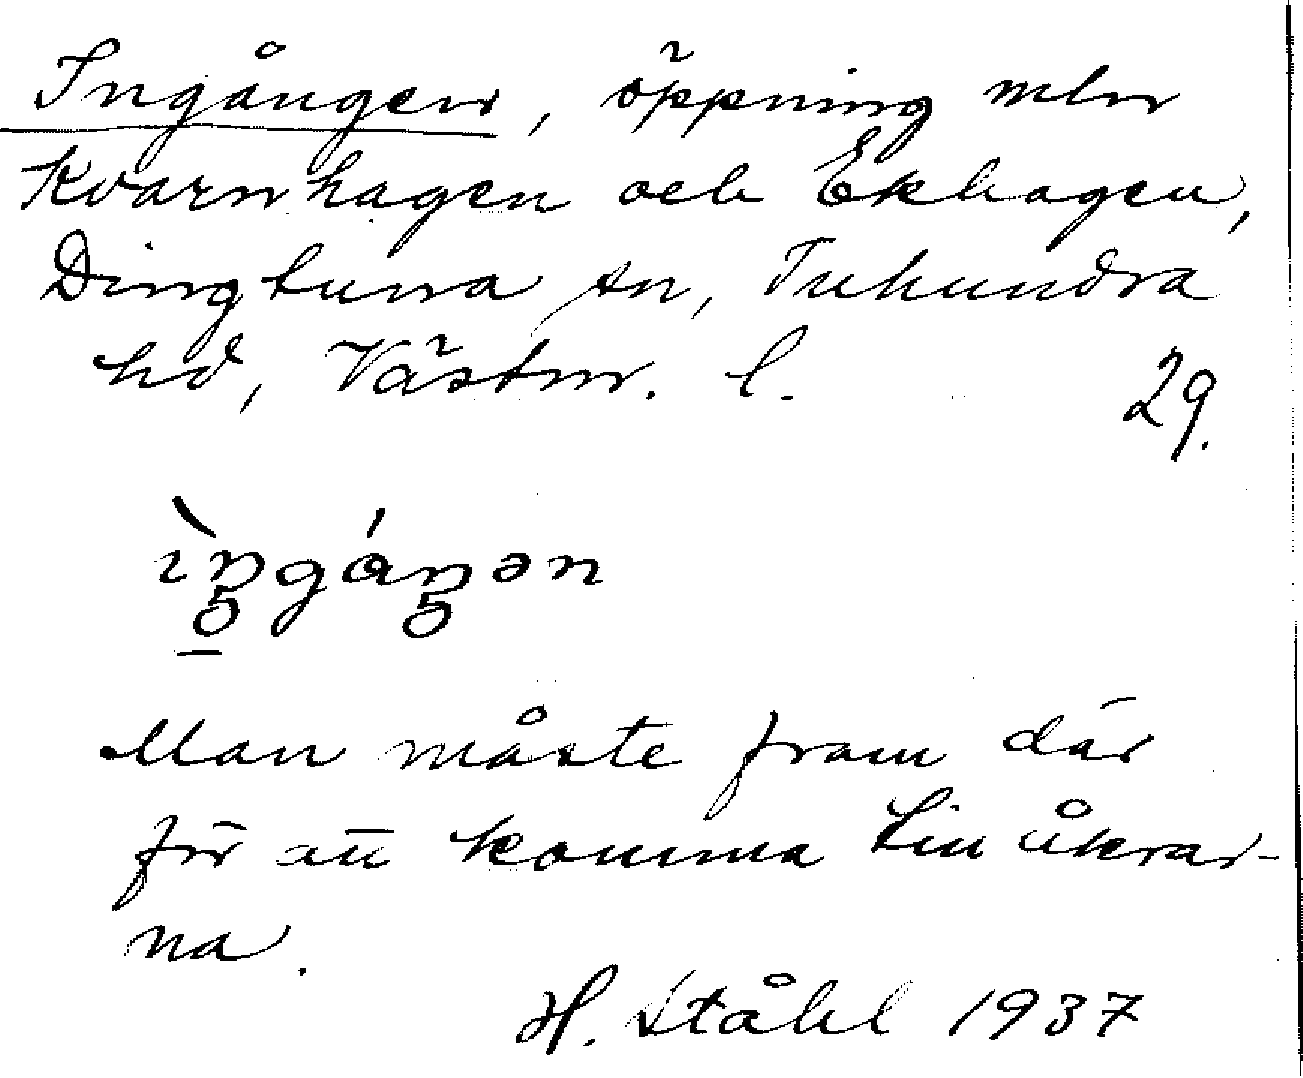 Ingången, öppning mln
Kvarnhagen och Ekhagen,
Dingtuna sn, Tuhundra
hd, Västm. l.
29.
ìŋgáŋən
Man måste fram där
för att komma till åkrar-
na.
H. Ståhl 1937